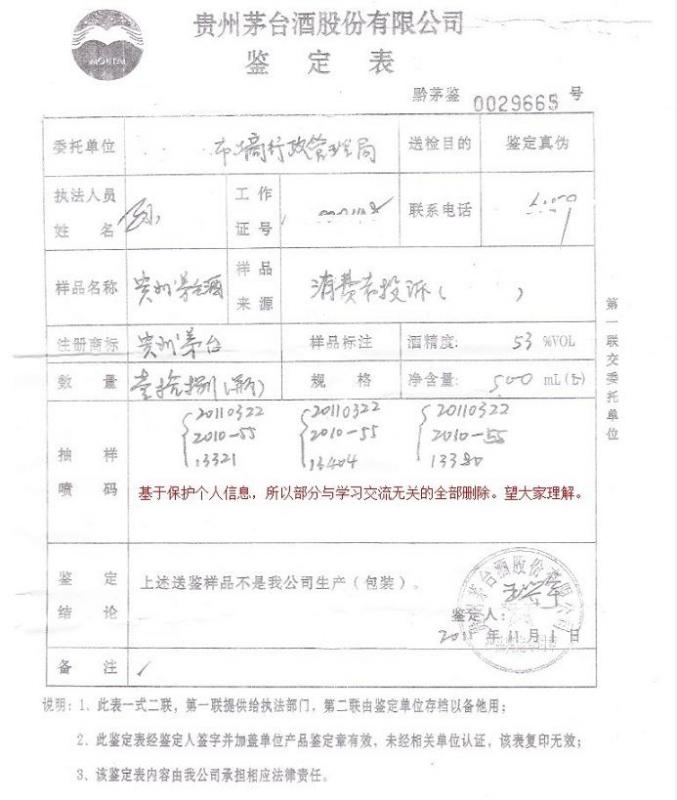 MOUTAI
贵州茅台酒股份有限公司
鉴定表
黔茅鉴 0029665 号
委托单位 市工商行政管理局 送检目的 鉴定真伪
执法人员姓名 工作证号 联系电话
样品名称 贵州茅台酒 样品来源 消费者投诉( )
注册商标 贵州茅台 样品标注 酒精度: 53 %VOL
数量 壹拾捌(瓶) 规格 净含量: 500 mL
抽样喷码
20110322 20110322 20110322
2010-55 2010-55 2010-55
13321 13404 13380
基于保护个人信息,所以部分与学习交流无关的全部删除。望大家理解。
鉴定结论 上述送鉴样品不是我公司生产(包装)。
贵州茅台酒股份有限公司
鉴定人:
2011年11月1日
备注
第一联交委托单位
说明:1、此表一式二联,第一联提供给执法部门,第二联由鉴定单位存档以备他用;
2、此鉴定表经鉴定人签字并加盖单位产品鉴定章有效,未经相关单位认证,该表复印无效;
3、该鉴定表内容由我公司承担相应法律责任。